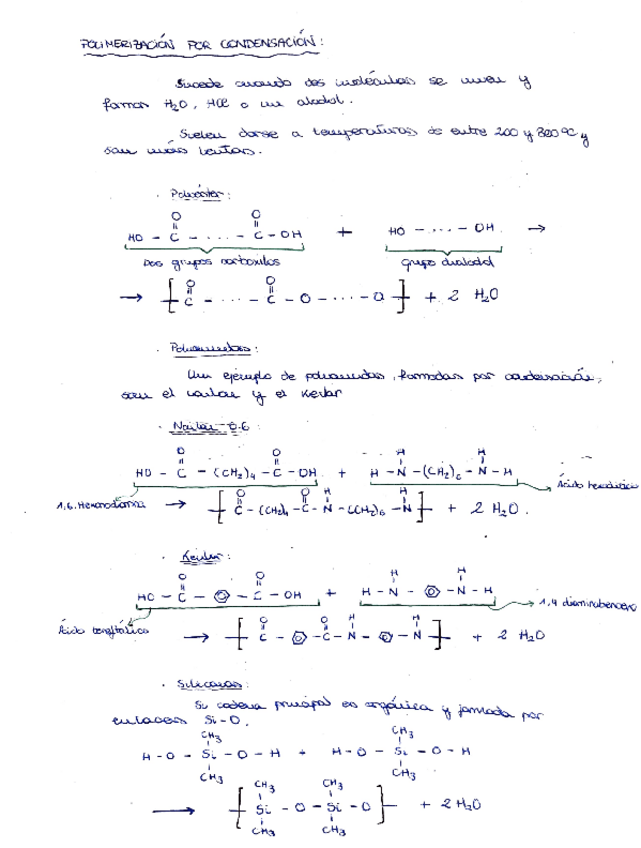 POLIMERIZACIÓN POR CONDENSACIÓN:
Sucede cuando dos moléculas se unen y
forman H2O, HCl o un alcohol.
Suelen darse a temperaturas de entre 200 y 320 ºC y
son más lentas.
· Poliéster:
O O
HO - C - .... - C - OH + HO - ... - OH →
Dos grupos carboxilos grupo dialcohol
→ [ C - ... - C - O - ... - O ] + 2 H2O
· Poliamidas:
Un ejemplo de poliamidas, formadas por condensación,
son el nailon y el Kevlar
· Nailon 6.6
O O H H
HO - C - (CH2)4 - C - OH + H - N - (CH2)6 - N - H
Ácido
1,6. Hexanodiamina → [ C - (CH2)4 - C - N - (CH2)6 - N ] + 2 H2O.
· Kevlar:
O O H H
HO - C - - C - OH + H - N - - N - H
1,4 diaminobenceno
Ácido tereftálico → [ C - - C - N - - N ] + 2 H2O
· Siliconas:
Su cadena principal es orgánica y formada por
enlaces Si-O.
CH3 CH3
H - O - Si - O - H + H - O - Si - O - H
CH3 CH3
CH3 CH3
→ [ Si - O - Si - O ] + 2 H2O
CH3 CH3